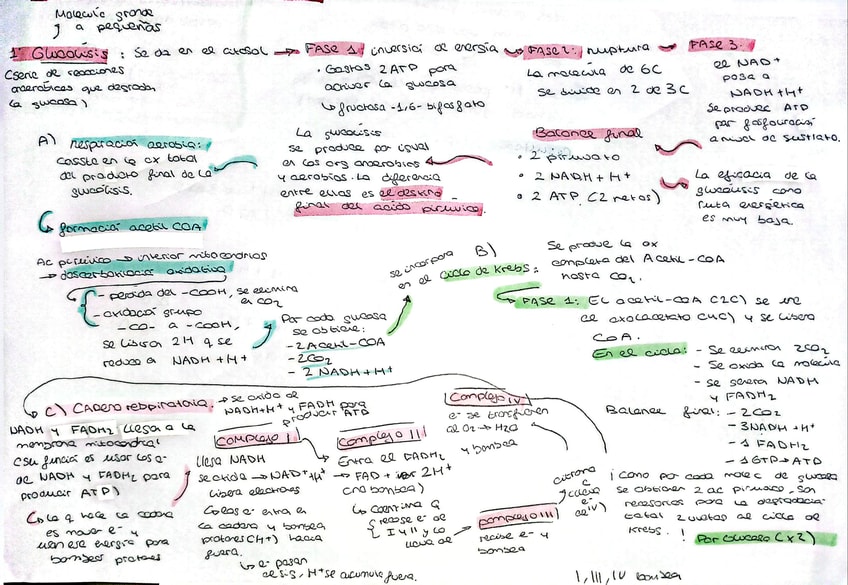 Molecula grande
↓ a pequeñas
1º Glucolisis : Se da en el citosol → FASE 1: inversión de energía → FASE 2: ruptura → FASE 3:
(serie de reacciones
anaerobicas que degradan
la glucosa)
· Gastas 2 ATP para
activar la glucosa
↳ fructosa-1,6-bifosfato
La molécula de 6C
se divide en 2 de 3C
el NAD+
pasa a
NADH+H+
Se produce ATP
por fosforilación
a nivel de sustrato.
Balance final
· 2 piruvato
· 2 NADH + H+
· 2 ATP (2 netos)
La eficacia de la
glucolisis como
ruta energética
es muy baja.
La glucolisis
se produce por igual
en los org anaerobios
y aerobios. La diferencia
entre ellas es el destino
final del acido piruvico.
A) respiración aerobia:
consiste en la ox total
del producto final de la
glucolisis.
↳ formación acetil COA
Ac piruvico → interior mitocondrias
→ descarboxilación oxidativa
- perdida del -COOH, se elimina
en CO2
- oxidación grupo
-CO- a -COOH,
se liberan 2H q se
reduce a NADH+H+
Por cada glucosa
se obtiene:
- 2 Acetil-COA
- 2CO2
- 2 NADH+H+
se incorpora
en el ciclo de Krebs:
B)
Se produce la ox
completa del Acetil-COA
hasta CO2.
→ FASE 1: El acetil-COA (2C) se une
al oxalacetato (4C) y se libera
COA.
En el ciclo: - Se eliminan 2CO2
- Se oxida la molecula
- se genera NADH
y FADH2
Balance final: - 2CO2
- 3NADH+H+
- 1 FADH2
- 1GTP → ATP
¡ Como por cada molec de glucosa
se obtienen 2 ac piruvico, son
necesarias para la degradación
total 2 vueltas al ciclo de
Krebs. !
Por Glucosa (x2)
C) Cadena respiratoria. → se oxida de
NADH+H+ y FADH para
producir ATP
NADH y FADH2 llega a la
membrana mitocondrial
(su función es usar los e-
de NADH y FADH2 para
producir ATP)
↳ lo q hace la cadena
es mover e- y
usen ese energia para
bombear protones
COMPLEJO I
llega NADH
se oxida → NAD+ + H+
libera electrones
↳ los e- entran en
la cadena y bombea
protones (H+) hacia
fuera.
↳ e- pasan
H+ se acumula fuera.
COMPLEJO II
Entra el FADH2
→ FAD + 2H+
(no bombea)
↳ Continua q
recoge e- de
I y II y lo
lleva de
complejo III
recibe e- y
bombea
citrona
C
(lleve
e-
al IV)
Complejo IV
e- se transfieren
al O2 → H2O
y bombea
I, III, IV bombea